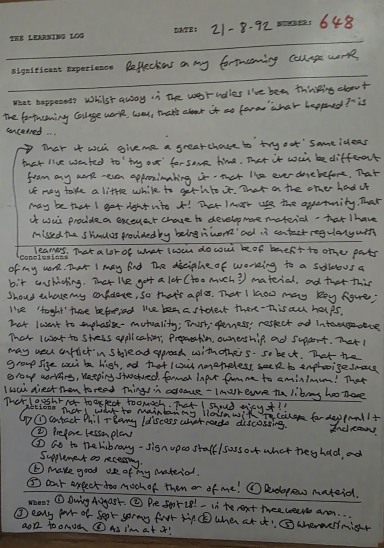 THE LEARNING LOG
DATE: 21-8-92 NUMBER: 648
Significant Experience Reflections on my forthcoming College work
What happened? Whilst away in the West Indies I've been thinking about
the forthcoming College work, well, that's about it as far as 'what happened?' is
concerned ...
That it will give me a great chance to 'try out' some ideas
that I've wanted to 'try out' for some time. That it will be different
from any work - even approximating it - that I've ever done before. That
it may take a little while to get into it. That on the other hand it
may be that I get right into it! That I must use the opportunity. That
it will provide an excellent chance to develop more material - that I have
missed the stimulus provided by being in work and in contact regularly with
learners. That a lot of what I will do will be of benefit to other parts
Conclusions
of my work. That I may find the discipline of working to a syllabus a
bit restricting. That I've got a lot (too much?) material, and that this
should enhance my confidence, so that's a plus. That I know many key figures;
I've 'taught' there before, and I've been a student there - this all helps.
That I want to emphasise - mutuality, trust, openness, respect and interdependence
That I want to stress application, preparation, ownership and support. That I
may well conflict in style and approach with others - so be it. That the
group size will be high, and that I will nonetheless seek to emphasise small
group working, keeping structured formal input from me to a minimum! That
I will direct them to read things in advance - I must ensure the library has these
That I ought not to expect too much. That I should enjoy it!!
Actions That I want to maintain my liaison with the College for
① Contact Phil T & Gerry / discuss what needs discussing.
② Prepare lesson plans
③ Go to the library - sign up as staff / suss out what they hold, and
supplement as necessary.
④ Make good use of my material.
⑤ Don't expect too much of them or of me! ⑥ Develop new material.
When? ① During August. ② Pre Sept 28! - in the next three weeks
③ early part of Sept ④ When at it! ⑤ Whenever I might
ask too much ⑥ As I'm at it!